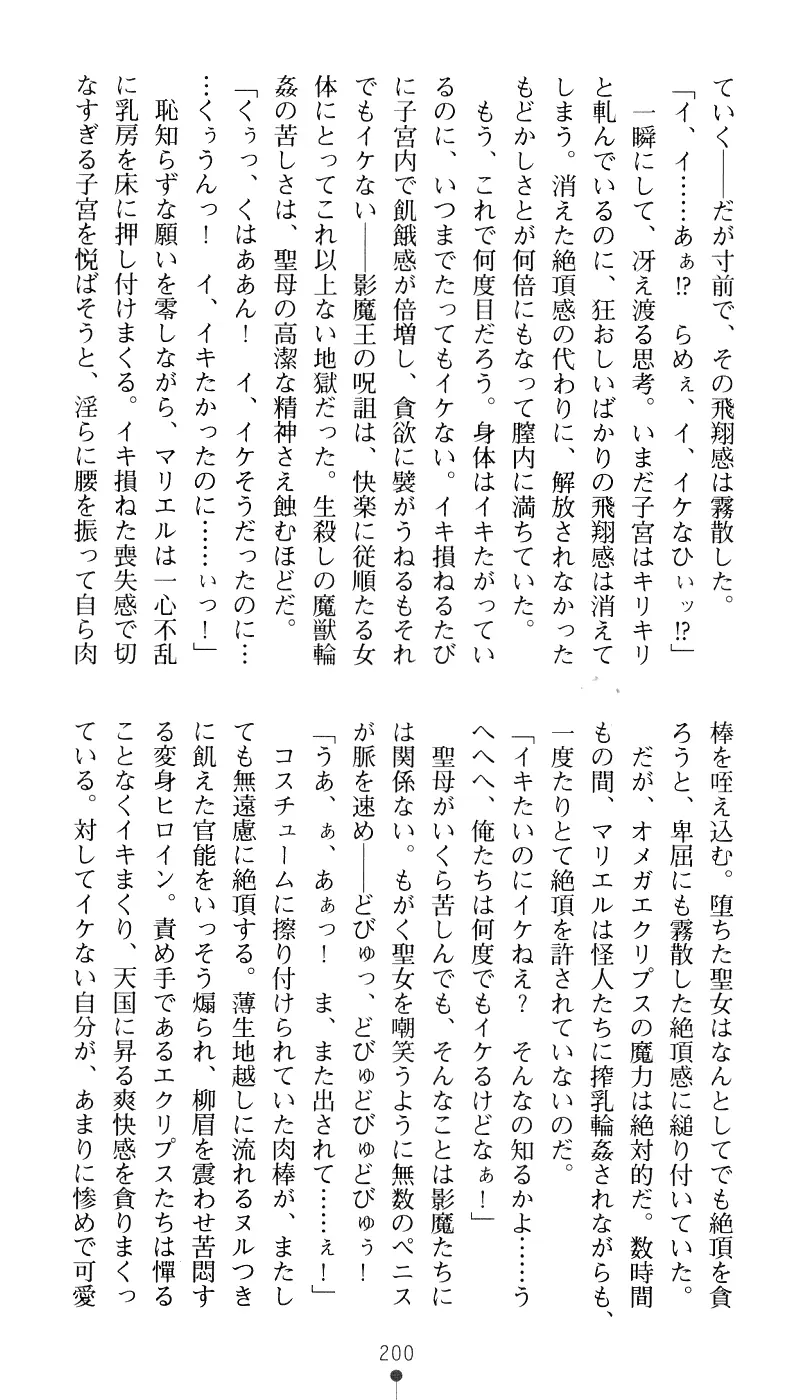 ていく――だが寸前で、その飛翔感は霧散した。
「イ、イ……あぁ!?　らめぇ、イ、イケなひぃッ!?」
一瞬にして、冴え渡る思考。いまだ子宮はキリキリ
と軋んでいるのに、狂おしいばかりの飛翔感は消えて
しまう。消えた絶頂感の代わりに、解放されなかった
もどかしさとが何倍にもなって膣内に満ちていた。
もう、これで何度目だろう。身体はイキたがってい
るのに、いつまでたってもイケない。イキ損ねるたび
に子宮内で飢餓感が倍増し、貪欲に襞がうねるもそれ
でもイケない――影魔王の呪詛は、快楽に従順たる女
体にとってこれ以上ない地獄だった。生殺しの魔獣輪
姦の苦しさは、聖母の高潔な精神さえ蝕むほどだ。
「くぅっ、くはああん！　イ、イケそうだったのに…
…くぅうんっ！　イ、イキたかったのに……ぃっ！」
恥知らずな願いを零しながら、マリエルは一心不乱
に乳房を床に押し付けまくる。イキ損ねた喪失感で切
なすぎる子宮を悦ばそうと、淫らに腰を振って自ら肉
棒を咥え込む。堕ちた聖女はなんとしてでも絶頂を貪
ろうと、卑屈にも霧散した絶頂感に縋り付いていた。
だが、オメガエクリプスの魔力は絶対的だ。数時間
もの間、マリエルは怪人たちに搾乳輪姦されながらも、
一度たりとて絶頂を許されていないのだ。
「イキたいのにイケねえ？　そんなの知るかよ……う
へへへ、俺たちは何度でもイケるけどなぁ！」
聖母がいくら苦しんでも、そんなことは影魔たちに
は関係ない。もがく聖女を嘲笑うように無数のペニス
が脈を速め――どびゅっ、どびゅどびゅどびゅぅ！
「うあ、ぁ、あぁっ！　ま、また出されて……ぇ！」
コスチュームに擦り付けられていた肉棒が、またし
ても無遠慮に絶頂する。薄生地越しに流れるヌルつき
に飢えた官能をいっそう煽られ、柳眉を震わせ苦悶す
る変身ヒロイン。責め手であるエクリプスたちは憚る
ことなくイキまくり、天国に昇る爽快感を貪りまくっ
ている。対してイケない自分が、あまりに惨めで可愛
200